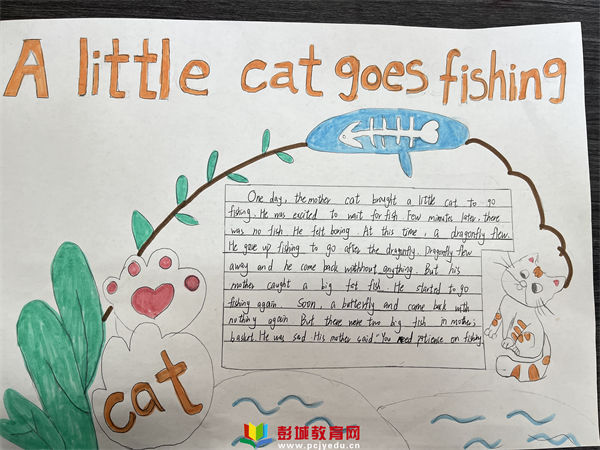 A little cat goes fishing
One day, the mother cat bought a little cat to go
fishing. He was excited to wait for fish. Few minutes later, there
was no fish. He felt boring. At this time, a dragonfly flew.
He gave up fishing to go after the dragonfly. Dragonfly flew
away and he come back withhout anything. But his
mother caught a big fat fish. He started to go
fishing again. Soon, a butterfly and came back with
nothing again. But there were two big fish in mother's
basket. He was sad. His mother said "You need patience on fishing
cat
彭城教育网
www.pcjyedu.cn